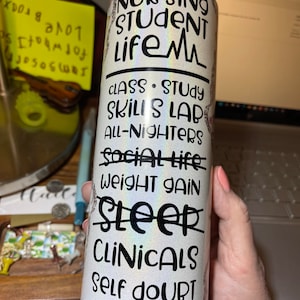 NURSING
STUDENT
LIFE
CLASS • STUDY
SKILLS LAB
ALL-NIGHTERS
SOCIAL LIFE
WEIGHT GAIN
SLEEP
CLINICALS
SELF DOUBT